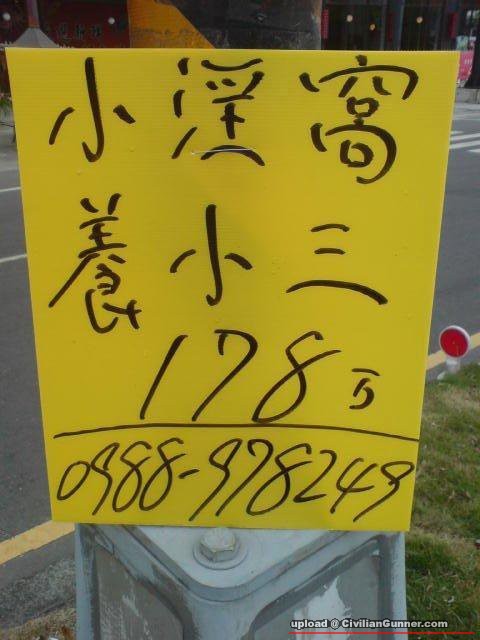 小淫窩
養小三
178万
0988-978249
upload @ CivilianGunner.com